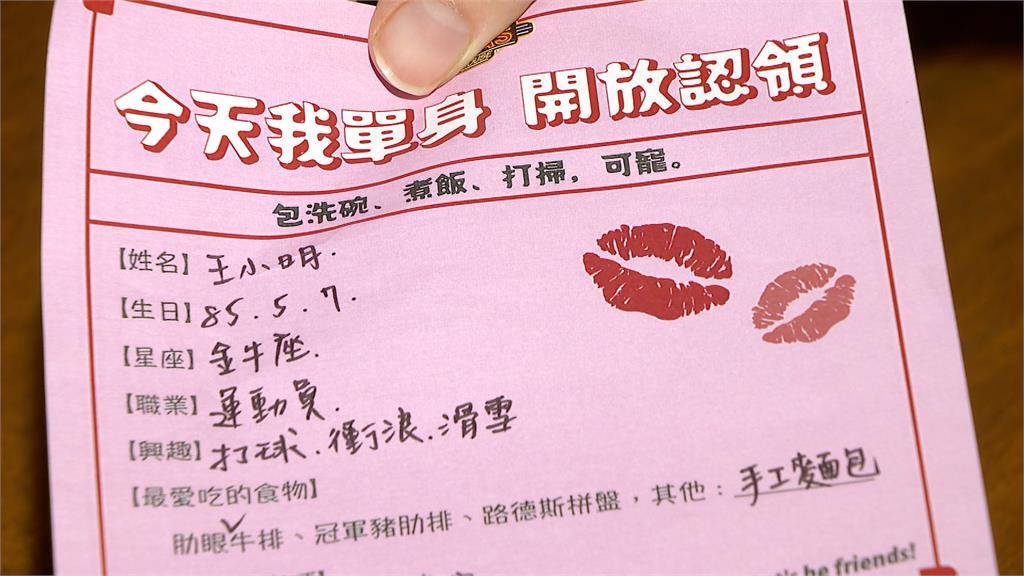 今天我單身 開放認領
包洗碗、煮飯、打掃，可寵。
【姓名】王小明.
【生日】85.5.7.
【星座】金牛座.
【職業】運動員.
【興趣】打球.衝浪.滑雪
【最愛吃的食物】
肋眼牛排、冠軍豬肋排、路德斯拼盤，其他：手工麵包
be friends!